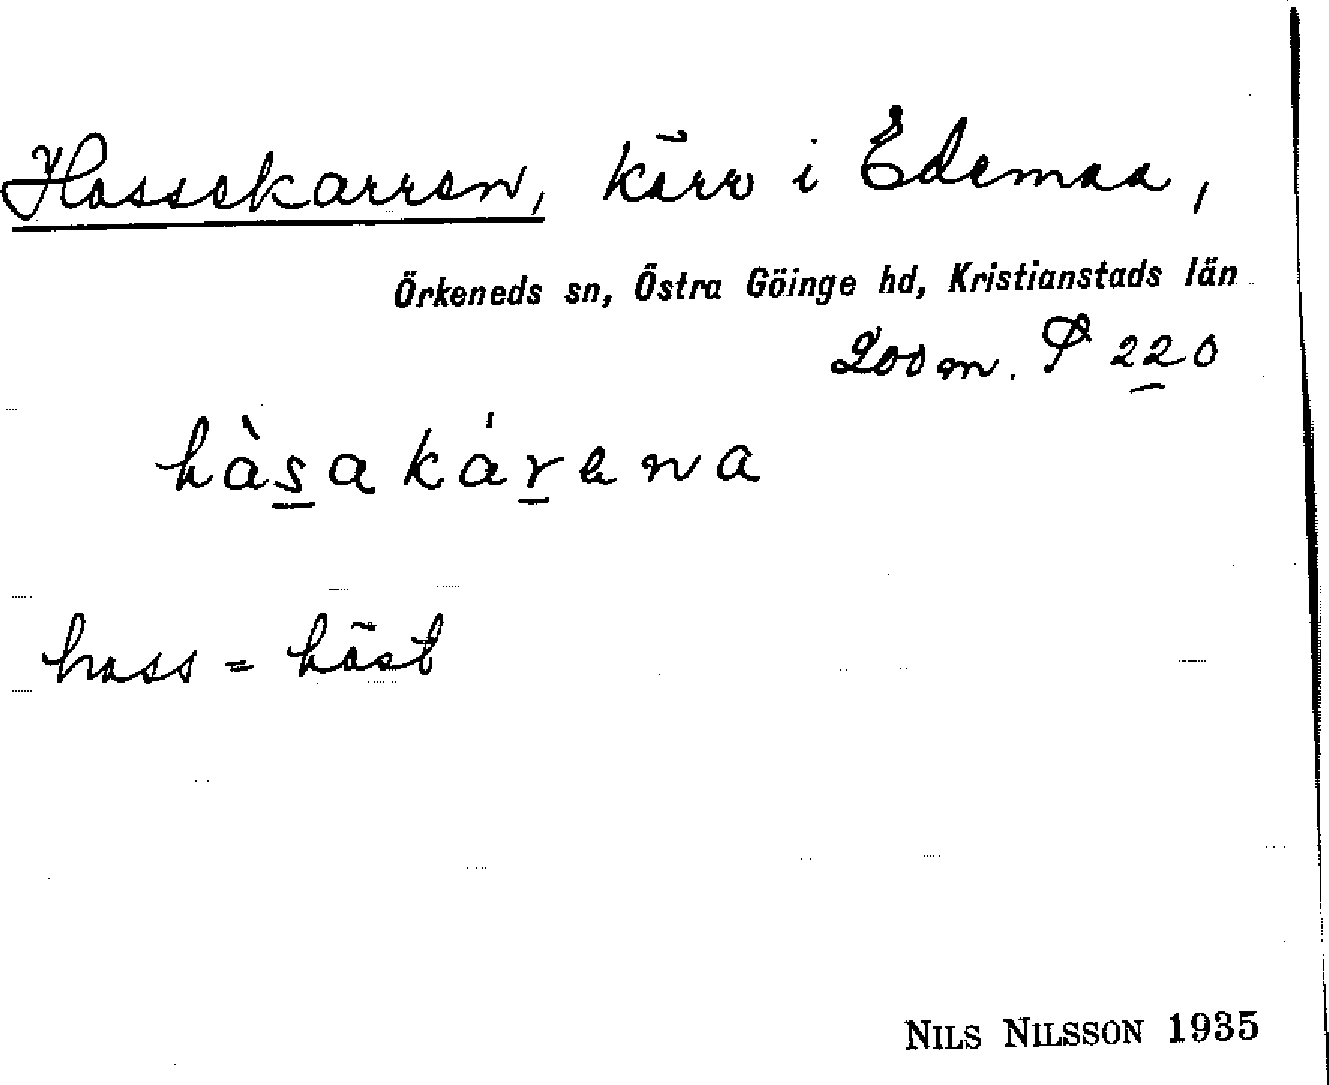 Hassekarren, kärr i Edemaa,
Örkeneds sn, Östra Göinge hd, Kristianstads län
200 m. P 220
hàsakárena
hass = häst
NILS NILSSON 1935